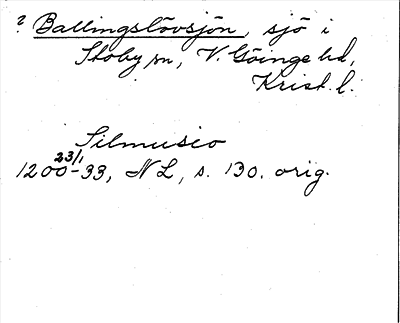 ? Ballingslövsjön, sjö i
Stoby sn, V. Göinge hd,
Krist. l.
Silmusio
1200 23/1 -33, NL, s. 130. orig.